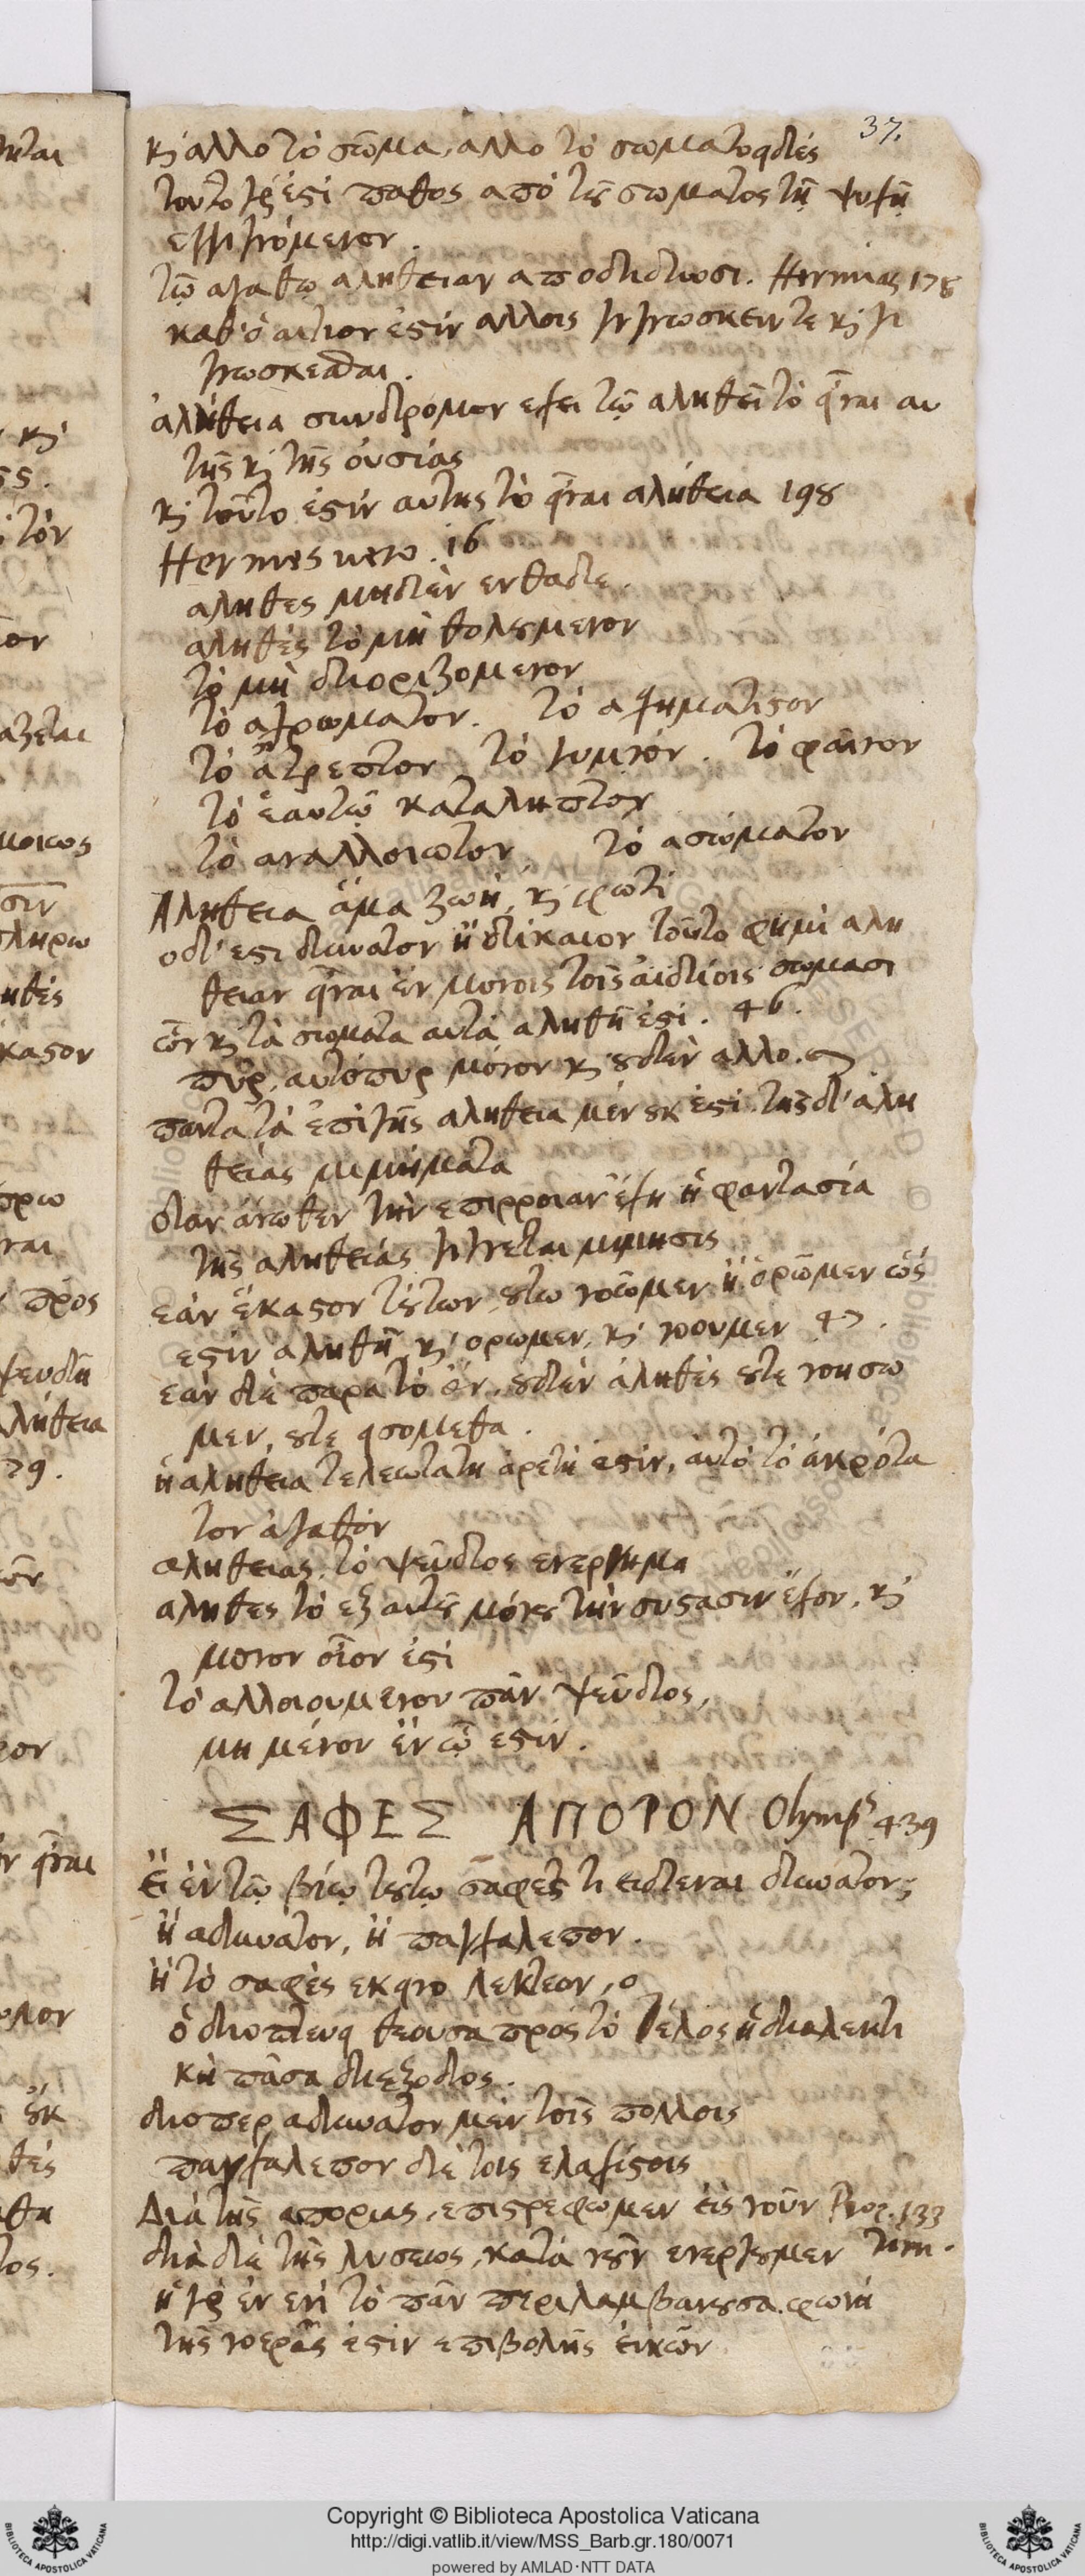 37.
κ̀ αλλο τὸ σῶμα, αλλο τὸ σωματοειδές
τοῦτο γ̀ ἐστὶ παθος απὸ τοῦ σωματος τῇ ψυχῇ
εγγινόμενον.
τῷ αγαθῷ αληθειαν αποδιδωσι. Hermias 178
καθ' ὃ αιτιον ἐστὶν αλλοις γιγνωσκειν τε κ̀ γι
γνωσκεσθαι.
ἀλήθεια συνδρομον εχει τῷ αληθεῖ τὸ εἶναι αυ
τῆς κ̀ τῆς ὀυσίας
κ̀ τοῦτο ἐστὶν αυτης τὸ εἶναι αλήθεια 198
Hermes vero. 46
αληθες μηδὲν ενθαδε.
αληθὲς τὸ μὴ θολουμενον
τὸ μὴ διοριζομενον
τὸ αχρωματον. τὸ αχηματιστον
τὸ ἄτρεπτον τὸ γυμνόν. τὸ φαῖνον
τὸ ἑαυτῷ καταληπτον
τὸ αναλλοιωτον τὸ ασώματον
Αληθεια ἅμα ζωῆ, κ̀ φωτὶ
οδ' εστι δυνατον ἢ δίκαιον τοῦτο φημὶ αλη
θειαν εἶναι ἐν μονοις τοῖς ἀιδίοις σωμασι
ὧν κ̀ τὰ σωματα αυτὰ αληθῆ ἐστι. 46.
πῦρ, αυτόπυρ μόνον κ̀ ουδεν αλλο.
παντα τὰ ἐπὶ γῆς αληθεια μὲν ουκ ἐστι. τῆς δ' ἀλη
θείας μιμήματα
οταν ἄνωθεν τὴν επιρροιαν ἔχη ἡ φαντασία
τῆς αληθείας γιγνεται μιμησις
εὰν ἕκαστον τούτων ουτω νοῶμεν ἢ ὁρῶμεν ὥς
εστιν αληθῆ κ̀ ορωμεν, κ̀ νοουμεν 47.
εὰν δὲ παρα τὸ ὄν, ουδεν ἀληθὲς ουτε νοησω
μεν, ουτε εισομεθα.
ἡ αληθεια τελεωτατη ἀρετὴ ἐστιν, ἀυτὸ τὸ ἀκρότα
τον ἀγαθόν
αληθειας, τὸ ψεῦδος ενεργημα
αληθες τὸ εξ αυτοῦ μόνου τὴν συστασιν ἔχον, κ̀
μονον οἷον ἐστί
τὸ αλλοιουμενον πᾶν ψεῦδος,
μη μένον ἐν ᾧ εστιν.
ΣΑΦΕΣ ΑΠΟΡΟΝ Olymp 439
Ει ἐν τῷ βίῳ τουτῳ σαφες τι ειδεναι δυνατον;
ἢ αδυνατον, ἢ παγχαλεπον.
ἢ τὸ σαφὲς εκεινο λεκτεον, ο
ὃ διοπτευει θεουσα προς τὸ τέλος ἡ διαλεκτι
κὴ πᾶσα διεξοδος.
διοπερ αδυνατον μὲν τοῖς πολλοις
παγχαλεπον δὲ τοις ελαχίστοις
Διὰ τῆς αποριας, επιστρεφωμεν εἰς νοῦν Proc. 133
διὰ δὲ τῆς λυσεως, κατὰ νοῦν ενεργουμεν Tim.
ἡ γ̀ ἐν ενὶ τὸ πᾶν περιλαμβανουσα φωνὴ
τῆς νοερᾶς ἐστιν επιβολῆς ἐικὼν
Copyright © Biblioteca Apostolica Vaticana
http://digi.vatlib.it/view/MSS_Barb.gr.180/0071
powered by AMLAD·NTT DATA